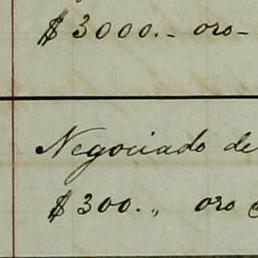 $ 3000.- oro-
Negociado de
$ 300.„ oro